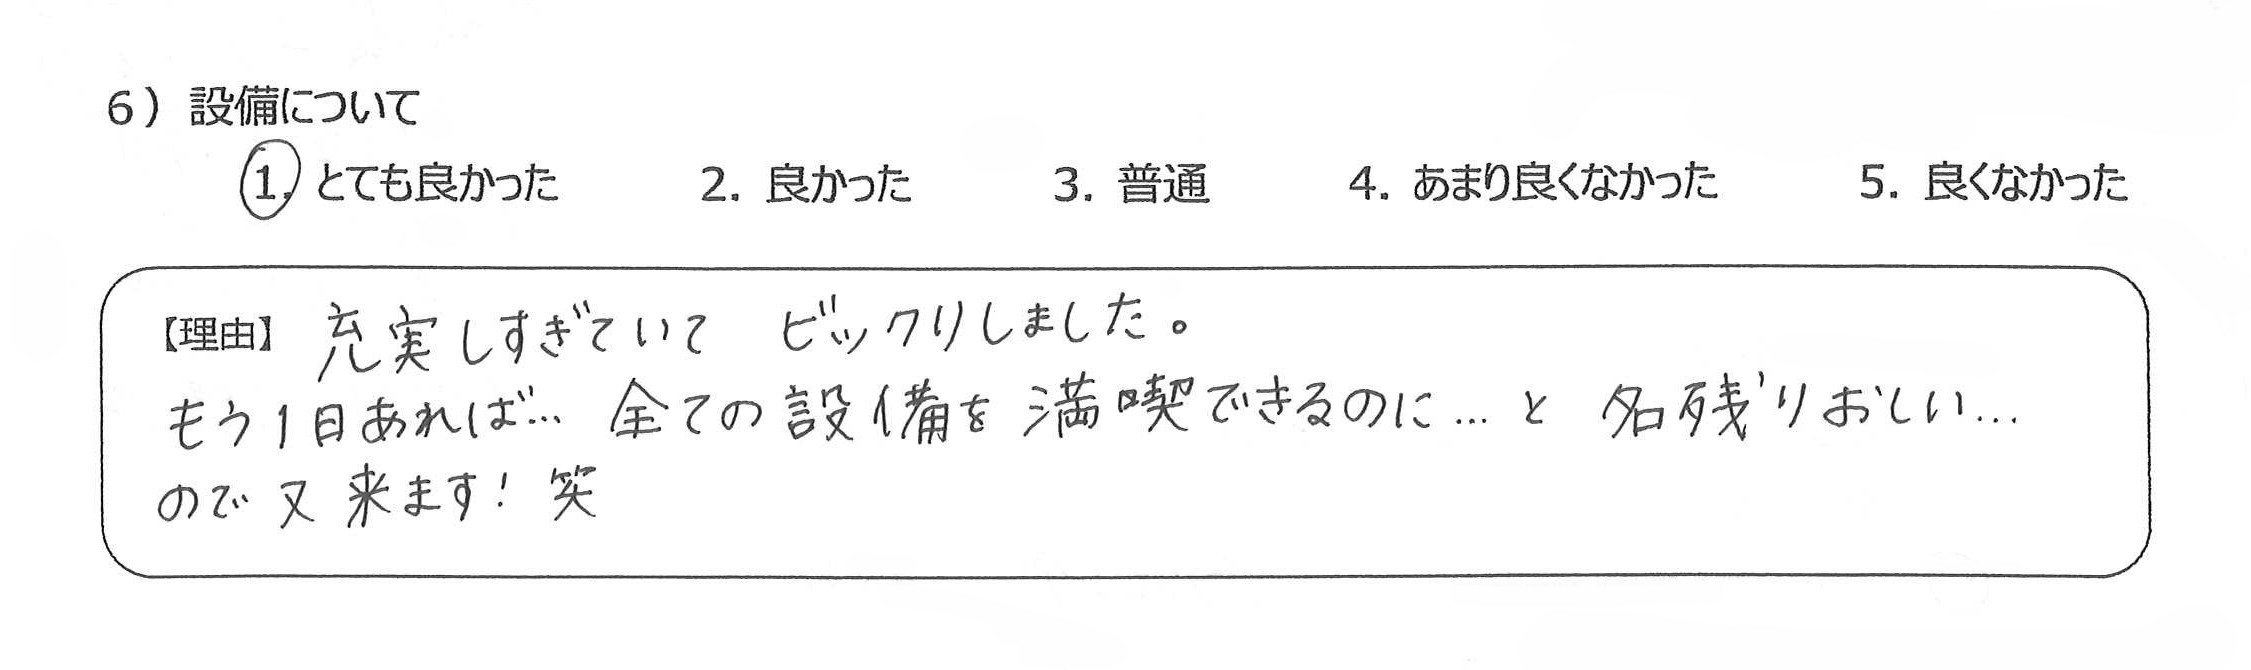 6）設備について
1. とても良かった 2. 良かった 3. 普通 4. あまり良くなかった 5. 良くなかった
【理由】充実しすぎていて ビックリしました。
もう1日あれば… 全ての設備を満喫できるのに…と 名残りおしい…
ので又来ます！笑